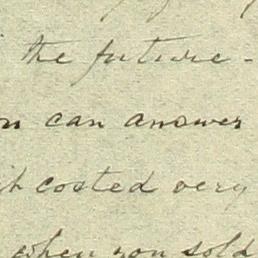 the future -
can answer
it costed very
when you sold